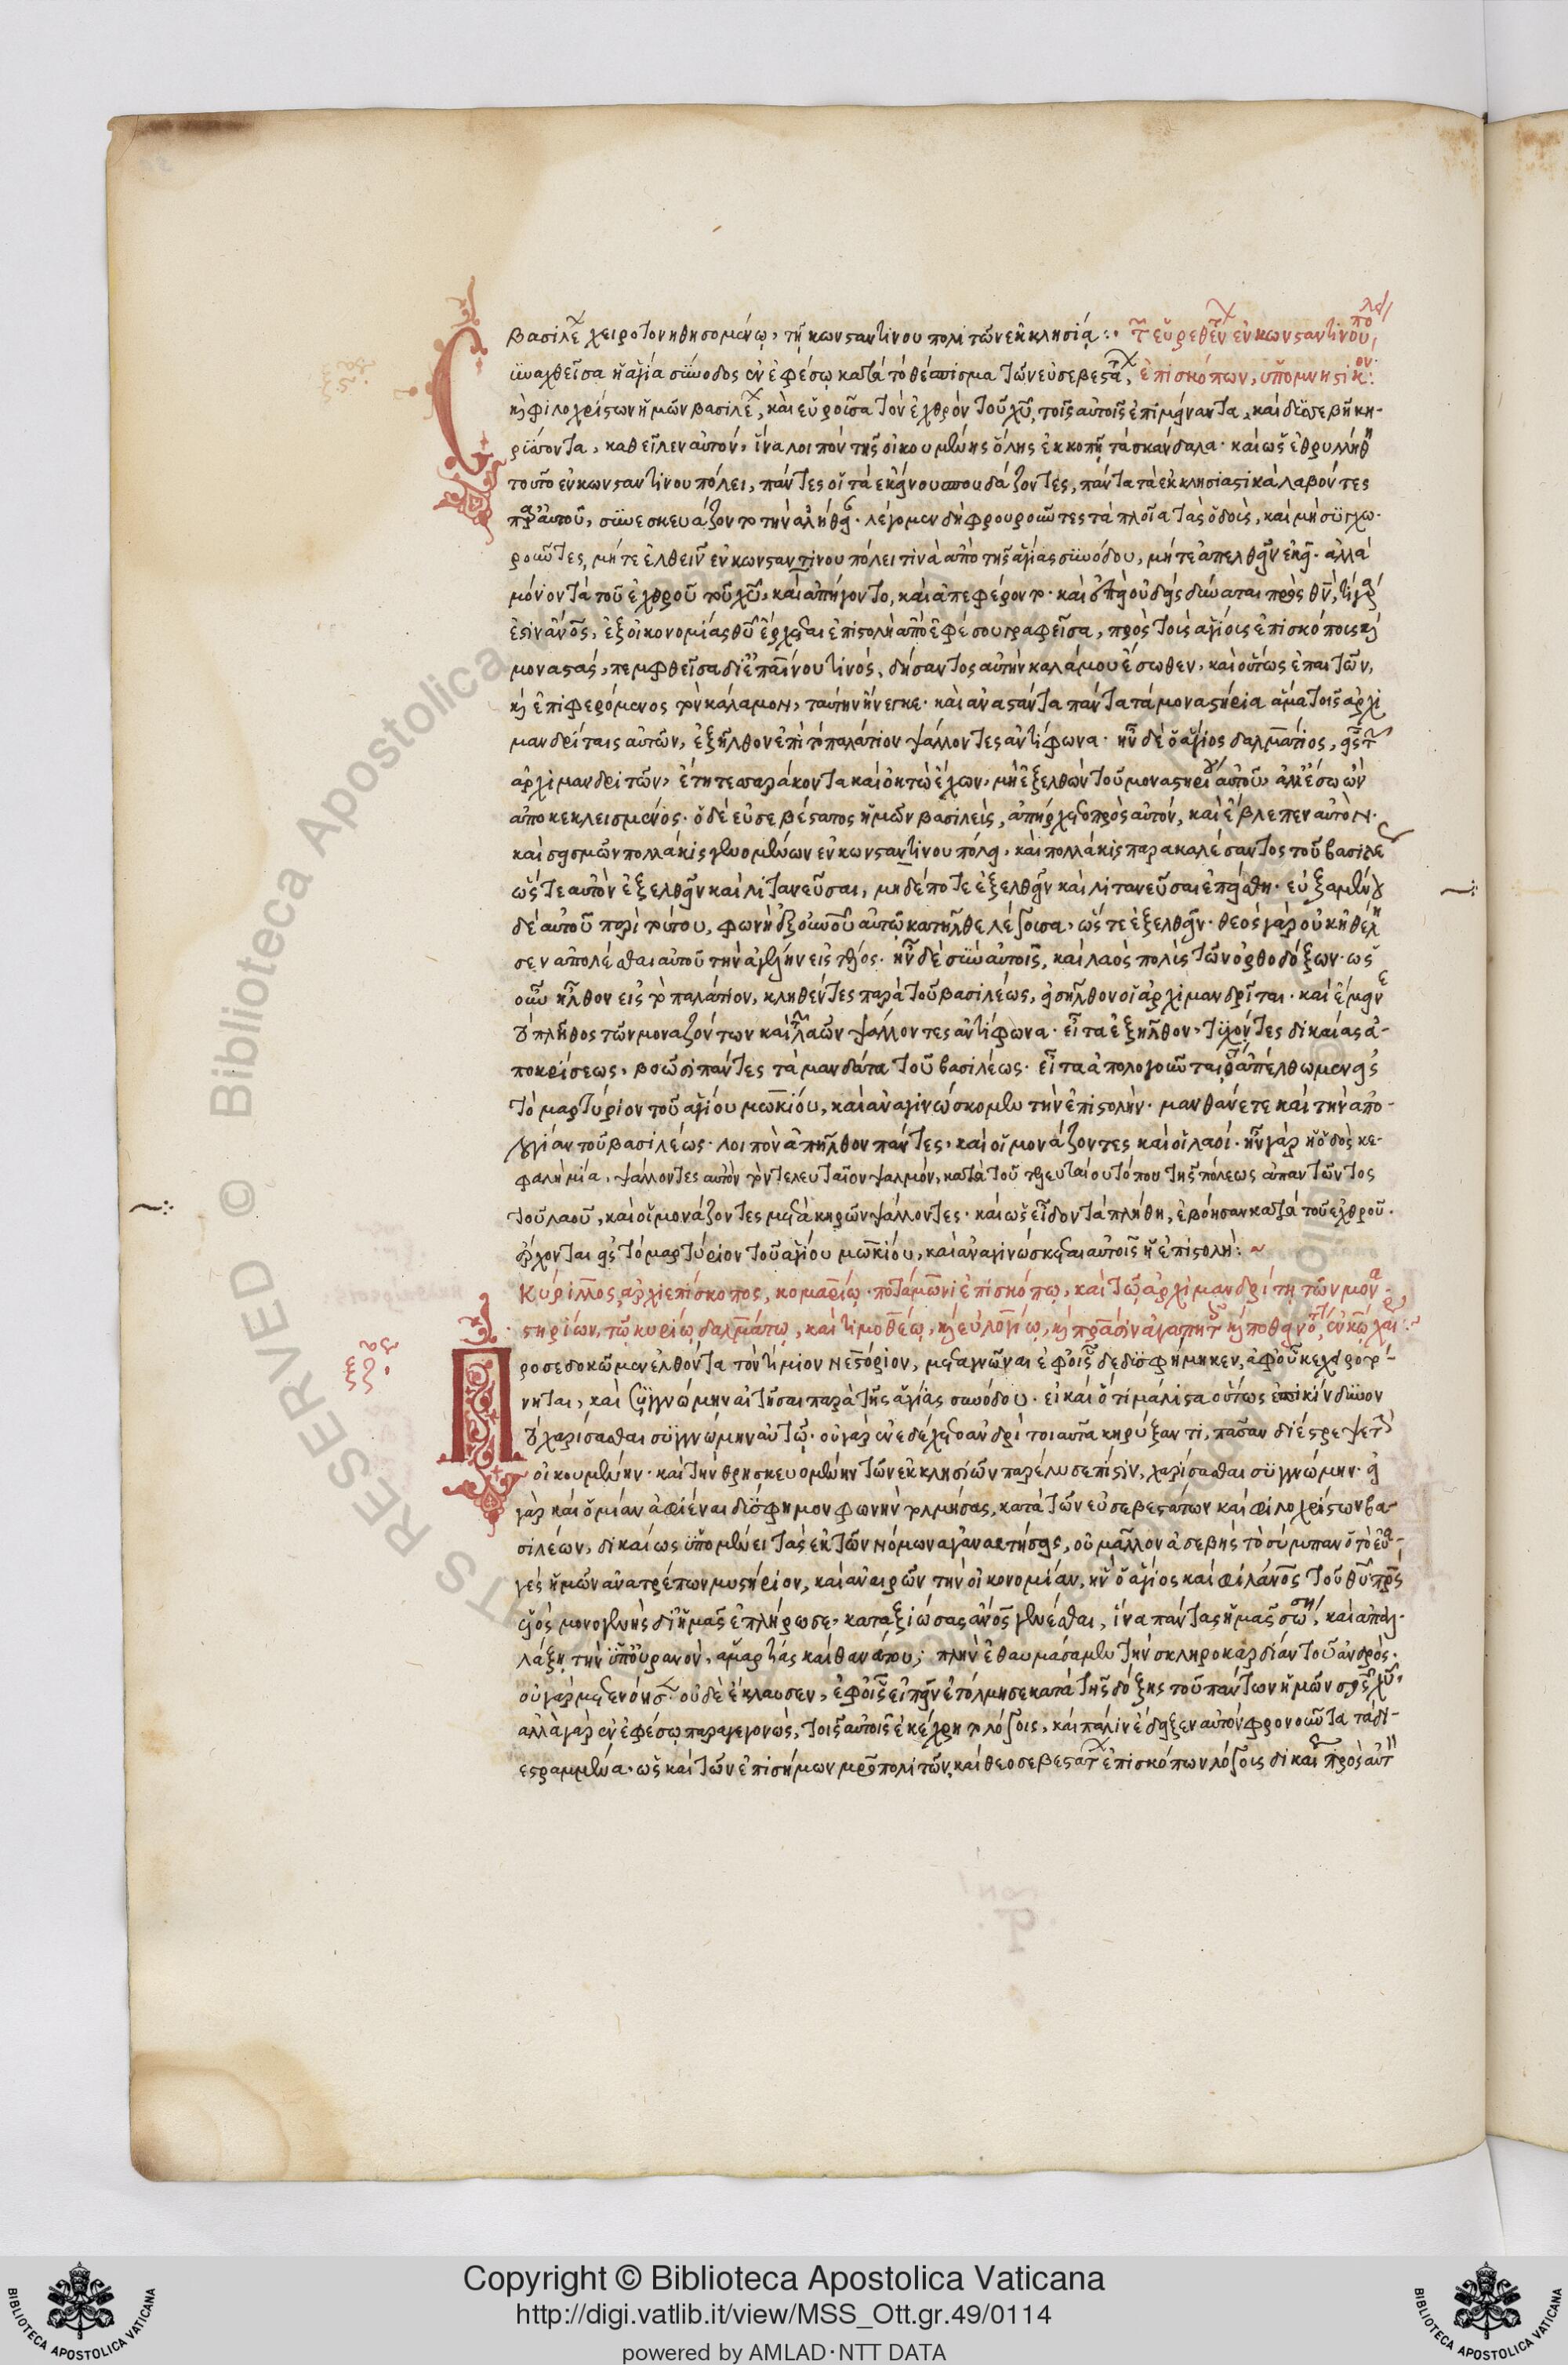 βασιλέων χειροτονηθησομένῳ, τῇ κωνσταντινουπολιτῶν ἐκκλησίᾳ :· Τῶν εὑρεθέντων ἐν κωνσταντινουπόλει
Συναχθεῖσα ἡ ἁγία σύνοδος ἐν ἐφέσῳ κατὰ τὸ θέσπισμα τῶν εὐσεβεστάτων, ἐπισκόπων, ὑπομνηστικόν :
καὶ φιλοχρίστων ἡμῶν βασιλέων, καὶ εὑροῦσα τὸν ἐχθρὸν τοῦ χῦ, τοῖς αὐτοῖς ἐπιμείναντα, καὶ δυσσεβῆ κη-
ρύσσοντα, καθεῖλεν αὐτόν, ἵνα λοιπὸν τῆς οἰκουμένης ὅλης ἐκκοπῇ τὰ σκάνδαλα· καὶ ὡς ἐθρυλλήθη
τοῦτο ἐν κωνσταντινουπόλει, πάντες οἱ τὰ ἐκείνου σπουδάζοντες, πάντα τὰ ἐκκλησιαστικὰ λαβόντες
παρ' αὐτοῦ, συνεσκευάζοντο τὴν ἀλήθειαν· λέγομεν δὴ φρουροῦντες τὰ πλοῖα τὰς ὁδοὺς, καὶ μὴ συγχω-
ροῦντες, μήτε ἐλθεῖν ἐν κωνσταντινουπόλει τινὰ ἀπὸ τῆς ἁγίας συνόδου, μήτε ἀπελθεῖν ἐκεῖ· ἀλλὰ
μόνον τὰ τοῦ ἐχθροῦ τοῦ χῦ, καὶ ἀπήγοντο, καὶ ἀπεφέροντο· καὶ ἐπεὶ οὐδεὶς δύναται πρὸς θν̅, τί γάρ
ἐστιν ἄνος, ἐξ οἰκονομίας θῦ ἔρχεται ἐπιστολὴ ἀπὸ ἐφέσου γραφεῖσα, πρὸς τοὺς ἁγίους ἐπισκόπους καὶ
μοναστὰς, πεμφθεῖσα δι' ἐπαίνου τινός, δήσαντος αὐτὴν καλάμου ἔσωθεν, καὶ οὕτως ἐπαιτῶν,
καὶ ἐπιφερόμενος τὸν κάλαμον, ταύτην ἤνεγκε· καὶ ἀναστάντα πάντα τὰ μοναστήρια ἅμα τοῖς ἀρχι
μανδρίταις αὐτῶν, ἐξῆλθον ἐπὶ τὸ παλάτιον ψάλλοντες ἀντίφωνα· ἦν δὲ ὁ ἅγιος δαλμάτιος, εἷς τῶν
ἀρχιμανδριτῶν, ἔτη τεσσαράκοντα καὶ ὀκτὼ ἔχων, μὴ ἐξελθὼν τοῦ μοναστηρίου αὐτοῦ, ἀλλ' ἔσω ὢν
ἀποκεκλεισμένος· ὁ δὲ εὐσεβέστατος ἡμῶν βασιλεὺς, ἀπήρχετο πρὸς αὐτόν, καὶ ἔβλεπεν αὐτόν·
καὶ σεισμῶν πολλάκις γενομένων ἐν κωνσταντινουπόλει, καὶ πολλάκις παρακαλέσαντος τοῦ βασιλέως
ὥστε αὐτὸν ἐξελθεῖν καὶ λιτανεῦσαι, μηδέποτε ἐξελθεῖν καὶ λιτανεῦσαι ἐπείσθη· εὐξαμένου
δὲ αὐτοῦ περὶ τούτου, φωνὴ ἐξ οὐνοῦ αὐτῷ κατῆλθε λέγουσα, ὥστε ἐξελθεῖν· θεὸς γὰρ οὐκ ἠθέλη
σεν ἀπολέσθαι αὐτοῦ τὴν ἀγέλην εἰς τέλος· ἦν δὲ σὺν αὐτοῖς, καὶ λαὸς πολὺς τῶν ὀρθοδόξων· ὡς
οὖν ἦλθον εἰς τὸ παλάτιον, κληθέντες παρὰ τοῦ βασιλέως, εἰσῆλθον οἱ ἀρχιμανδρῖται· καὶ ἔμεινε
τὸ πλῆθος τῶν μοναζόντων καὶ λαῶν ψάλλοντες ἀντίφωνα· εἶτα ἐξῆλθον, τυχόντες δικαίας ἀ-
ποκρίσεως, βοῶσι πάντες τὰ μανδάτα τοῦ βασιλέως· εἶτα ἀπολογοῦνται, ὅτι ἀπέλθωμεν εἰς
τὸ μαρτύριον τοῦ ἁγίου μωκίου, καὶ ἀναγινώσκομεν τὴν ἐπιστολὴν· μανθάνετε καὶ τὴν ἀπο-
λογίαν τοῦ βασιλέως· λοιπὸν ἀπῆλθον πάντες, καὶ οἱ μονάζοντες καὶ οἱ λαοί· ἦν γὰρ ἡ ὁδὸς κε-
φαλὴ μία, ψάλλοντες αὐτὸν τὸν τελευταῖον ψαλμόν, κατὰ τοῦ τελευταίου τόπου τῆς πόλεως ἀπαντῶντος
τοῦ λαοῦ, καὶ οἱ μονάζοντες μετὰ κηρῶν ψάλλοντες· καὶ ὡς εἶδον τὰ πλήθη, ἐβόησαν κατὰ τοῦ ἐχθροῦ·
ἔρχονται εἰς τὸ μαρτύριον τοῦ ἁγίου μωκίου, καὶ ἀναγινώσκεται αὐτοῖς ἡ ἐπιστολή : ~
Κύριλλος, ἀρχιεπίσκοπος, κομαρίῳ· ποτάμωνι ἐπισκόπῳ, καὶ τῷ ἀρχιμανδρίτῃ τῶν μονα-
στηρίων, τῷ κυρίῳ δαλμάτῳ, καὶ τιμοθέῳ, καὶ εὐλογίῳ, καὶ πρᾶσιν ἀγαπητοῖς καὶ ποθεινοτάτοις, ἐν κω χαίρειν :
Προσεδοκῶμεν ἐλθόντα τὸν τίμιον Νεστόριον, μεταγνῶναι ἐφ' οἷς δεδυσφήμηκεν, ἀφ' οὗ κεχειροτό-
νηται, καὶ συγγνώμην αἰτῆσαι παρὰ τῆς ἁγίας συνόδου· εἰ καὶ ὅτι μάλιστα οὕτως ἐπικίνδυνον
τὸ χαρίσασθαι συγγνώμην αὐτῷ· οὐ γὰρ ἐνεδέχετο ἀνδρὶ τοιαῦτα κηρύξαντι, πᾶσαν διέστρεψε τὴν
οἰκουμένην· καὶ τὴν θρησκευομένην τῶν ἐκκλησιῶν παρέλυσε πίστιν, χαρίσασθαι συγγνώμην· εἰ
γὰρ καὶ ὁ μίαν ἀφιέναι δύσφημον φωνὴν τολμήσας, κατὰ τῶν εὐσεβεστάτων καὶ φιλοχρίστων βα-
σιλέων, δικαίως ὑπομένει τὰς ἐκ τῶν νόμων ἀγανακτήσεις, οὐ μᾶλλον ἀσεβὴς τὸ σύμπαν ὅτο εὐα-
γὲς ἡμῶν ἀνατρέπων μυστήριον, καὶ ἀναιρῶν τὴν οἰκονομίαν, ἣν ὁ ἅγιος καὶ φιλάνος τοῦ θῦ πρς
υἱὸς μονογενὴς δι' ἡμᾶς ἐπλήρωσε, καταξιώσας ἄνος γενέσθαι, ἵνα πάντας ἡμᾶς σώσῃ, καὶ ἀπαλ-
λάξῃ τὴν ὑπ' οὐρανὸν, ἁμαρτίας καὶ θανάτου; πλὴν ἐθαυμάσαμεν τὴν σκληροκαρδίαν τοῦ ἀνδρός·
οὐ γὰρ μετενόησεν· οὐδὲ ἔκλαυσεν, ἐφ' οἷς εἰπεῖν ἐτόλμησε κατὰ τῆς δόξης τοῦ πάντων ἡμῶν σρς χῦ·
ἀλλὰ γὰρ ἐν ἐφέσῳ παραγεγονὼς, τοῖς αὐτοῖς ἐκέχρητο λόγοις, καὶ πάλιν ἔδειξεν αὐτὸν φρονοῦντα τὰ δι-
εστραμμένα· ὡς καὶ τῶν ἐπισήμων μροπολιτῶν, καὶ θεοσεβεστάτων ἐπισκόπων λόγοις δικαίοις πρὸς αὐτὴν